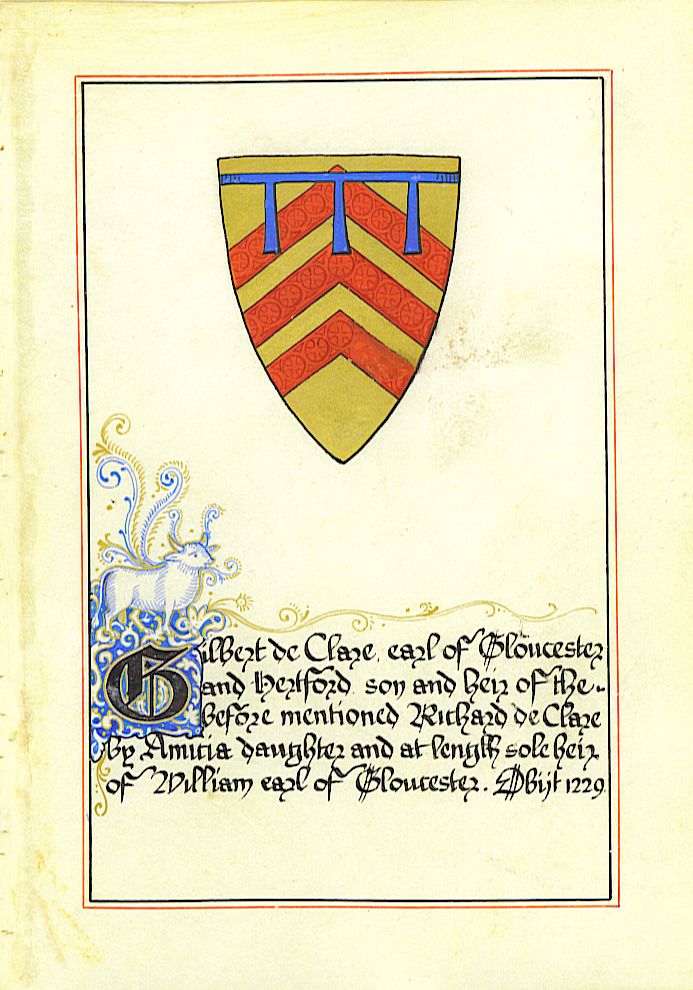 Gilbert de Clare, earl of Gloucester
and Hertford, son and heir of the
before mentioned Richard de Clare
by Amicia daughter and at length sole heir
of William earl of Gloucester. Obijt 1229